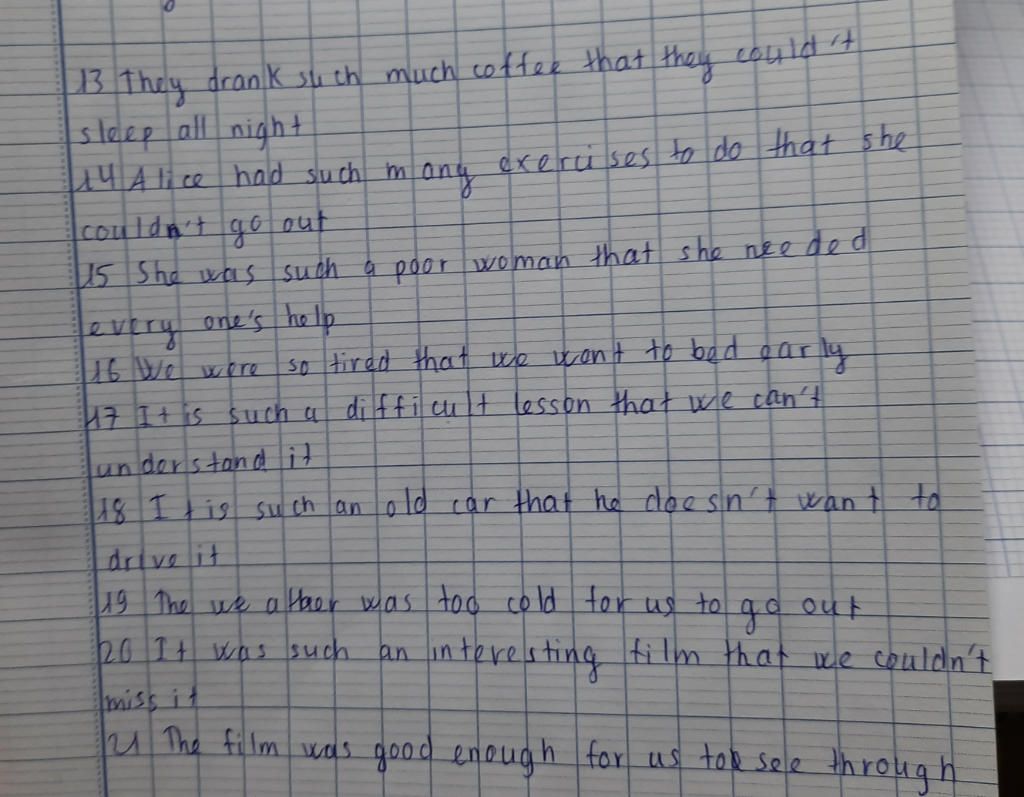 13 They drank such much coffee that they could't
sleep all night
14 Alice had such many exercises to do that she
couldn't go out
15 She was such a poor woman that she needed
every one's help
16 We were so tired that we went to bed early
17 It is such a difficult lesson that we can't
understand it
18 It is such an old car that he doesn't want to
drive it
19 The weather was too cold for us to go out
20 It was such an interesting film that we couldn't
miss it
21 The film was good enough for us to see through